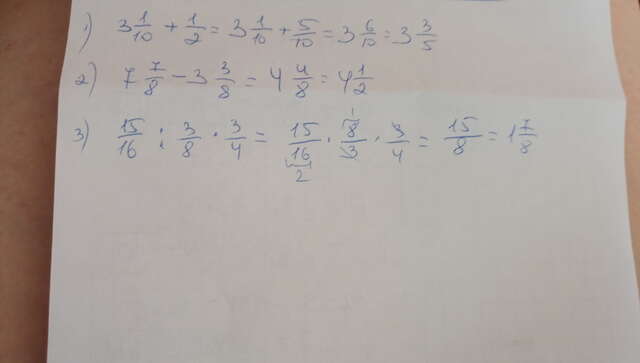 1) 3 1/10 + 1/2 = 3 1/10 + 5/10 = 3 6/10 = 3 3/5
2) 7 7/8 - 3 3/8 = 4 4/8 = 4 1/2
3) 15/16 : 3/8 · 3/4 = 15/16 2 · 1 8/3 · 3/4 = 15/8 = 1 7/8